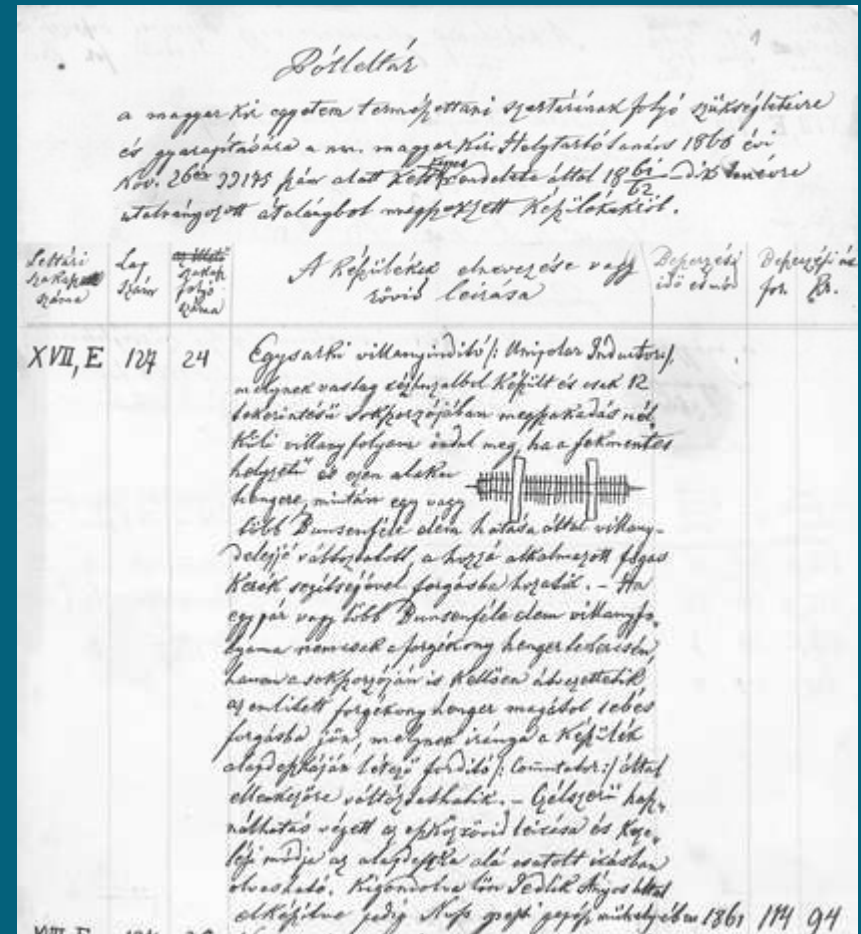 1
Pótleltár
a magyar kir egyetem természettani szertárának folyó szükségleteire
és gyarapítására a nm. magyar kir. Helytartótanács 1860 évi
Nov. 26án 33175 szám alatt kelt kegyes rendelete által 18 61/62 dik tanévre
utalványozott átalányból megszerzett készülékekről.
Leltári szakasz száma
Lap szám
az illető szakasz folyó száma
A készülékek elnevezése vagy rövid leírása
Beszerzési idő és mód
Beszerzési ár
for. Kr.
XVII, E 127 24 Egysarki villanyindító /: Unipolar Inductor:/,
melynek vastag rézhuzalból készült és csak 12
tekerintésű sokszorozójában megszakadás nél
küli villanyfolyam indul meg, ha a fekmentes
helyzetű és ezen alaku
hengere, miután egy vagy
több Bunsenféle elem hatása által villany-
delejjé változtatott, a hozzá alkalmazott fogas
kerék segítségével forgásba hozatik. – Ha
egy pár vagy több Bunsenféle elem villanyfo-
lyama nemcsak a forgékony henger tekercsén,
hanem a sokszorozóján is kellően átvezettetik
az említett forgékony henger magától sebes
forgásba jön, melynek iránya a készülék
alapdeszkáján létező fordító /: Commutator :/ által
ellenkezőre változtathatik. – Célszerű hasz-
nálhatás végett az eszköz rövid leírása és keze-
lési módja az alapdeszka alá csatolt írásban
olvasható. Kigondolva lön Jedlik Ányos által
elkészítve pedig Nuss pesti gépész műhelyében 1861 114 94
XVII, E